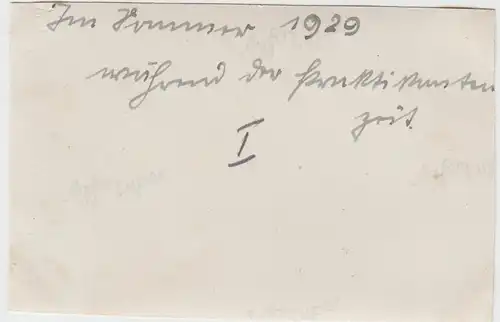 Im Sommer 1929
während der Praktikanten
zeit.
I